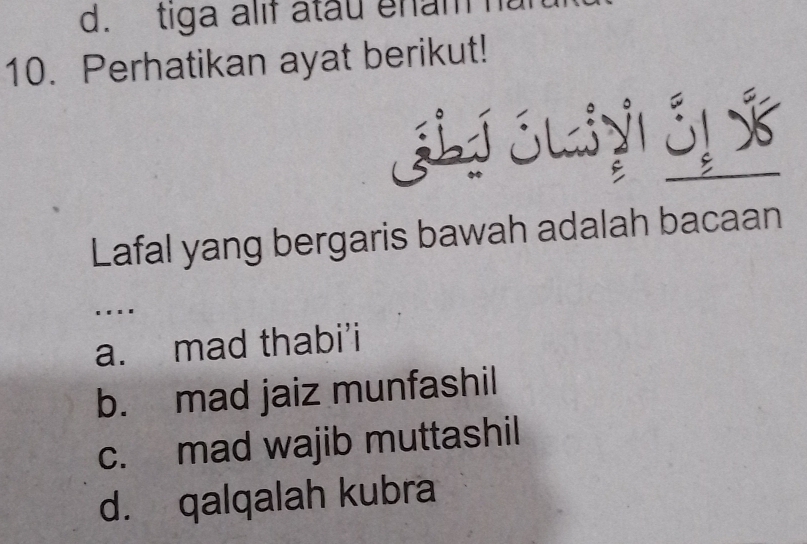 d. tiga alif atau enam
10. Perhatikan ayat berikut!
كَلَّا إِنَّ الْإِنْسَانَ لَيَطْغَى
Lafal yang bergaris bawah adalah bacaan
....
a. mad thabi'i
b. mad jaiz munfashil
c. mad wajib muttashil
d. qalqalah kubra